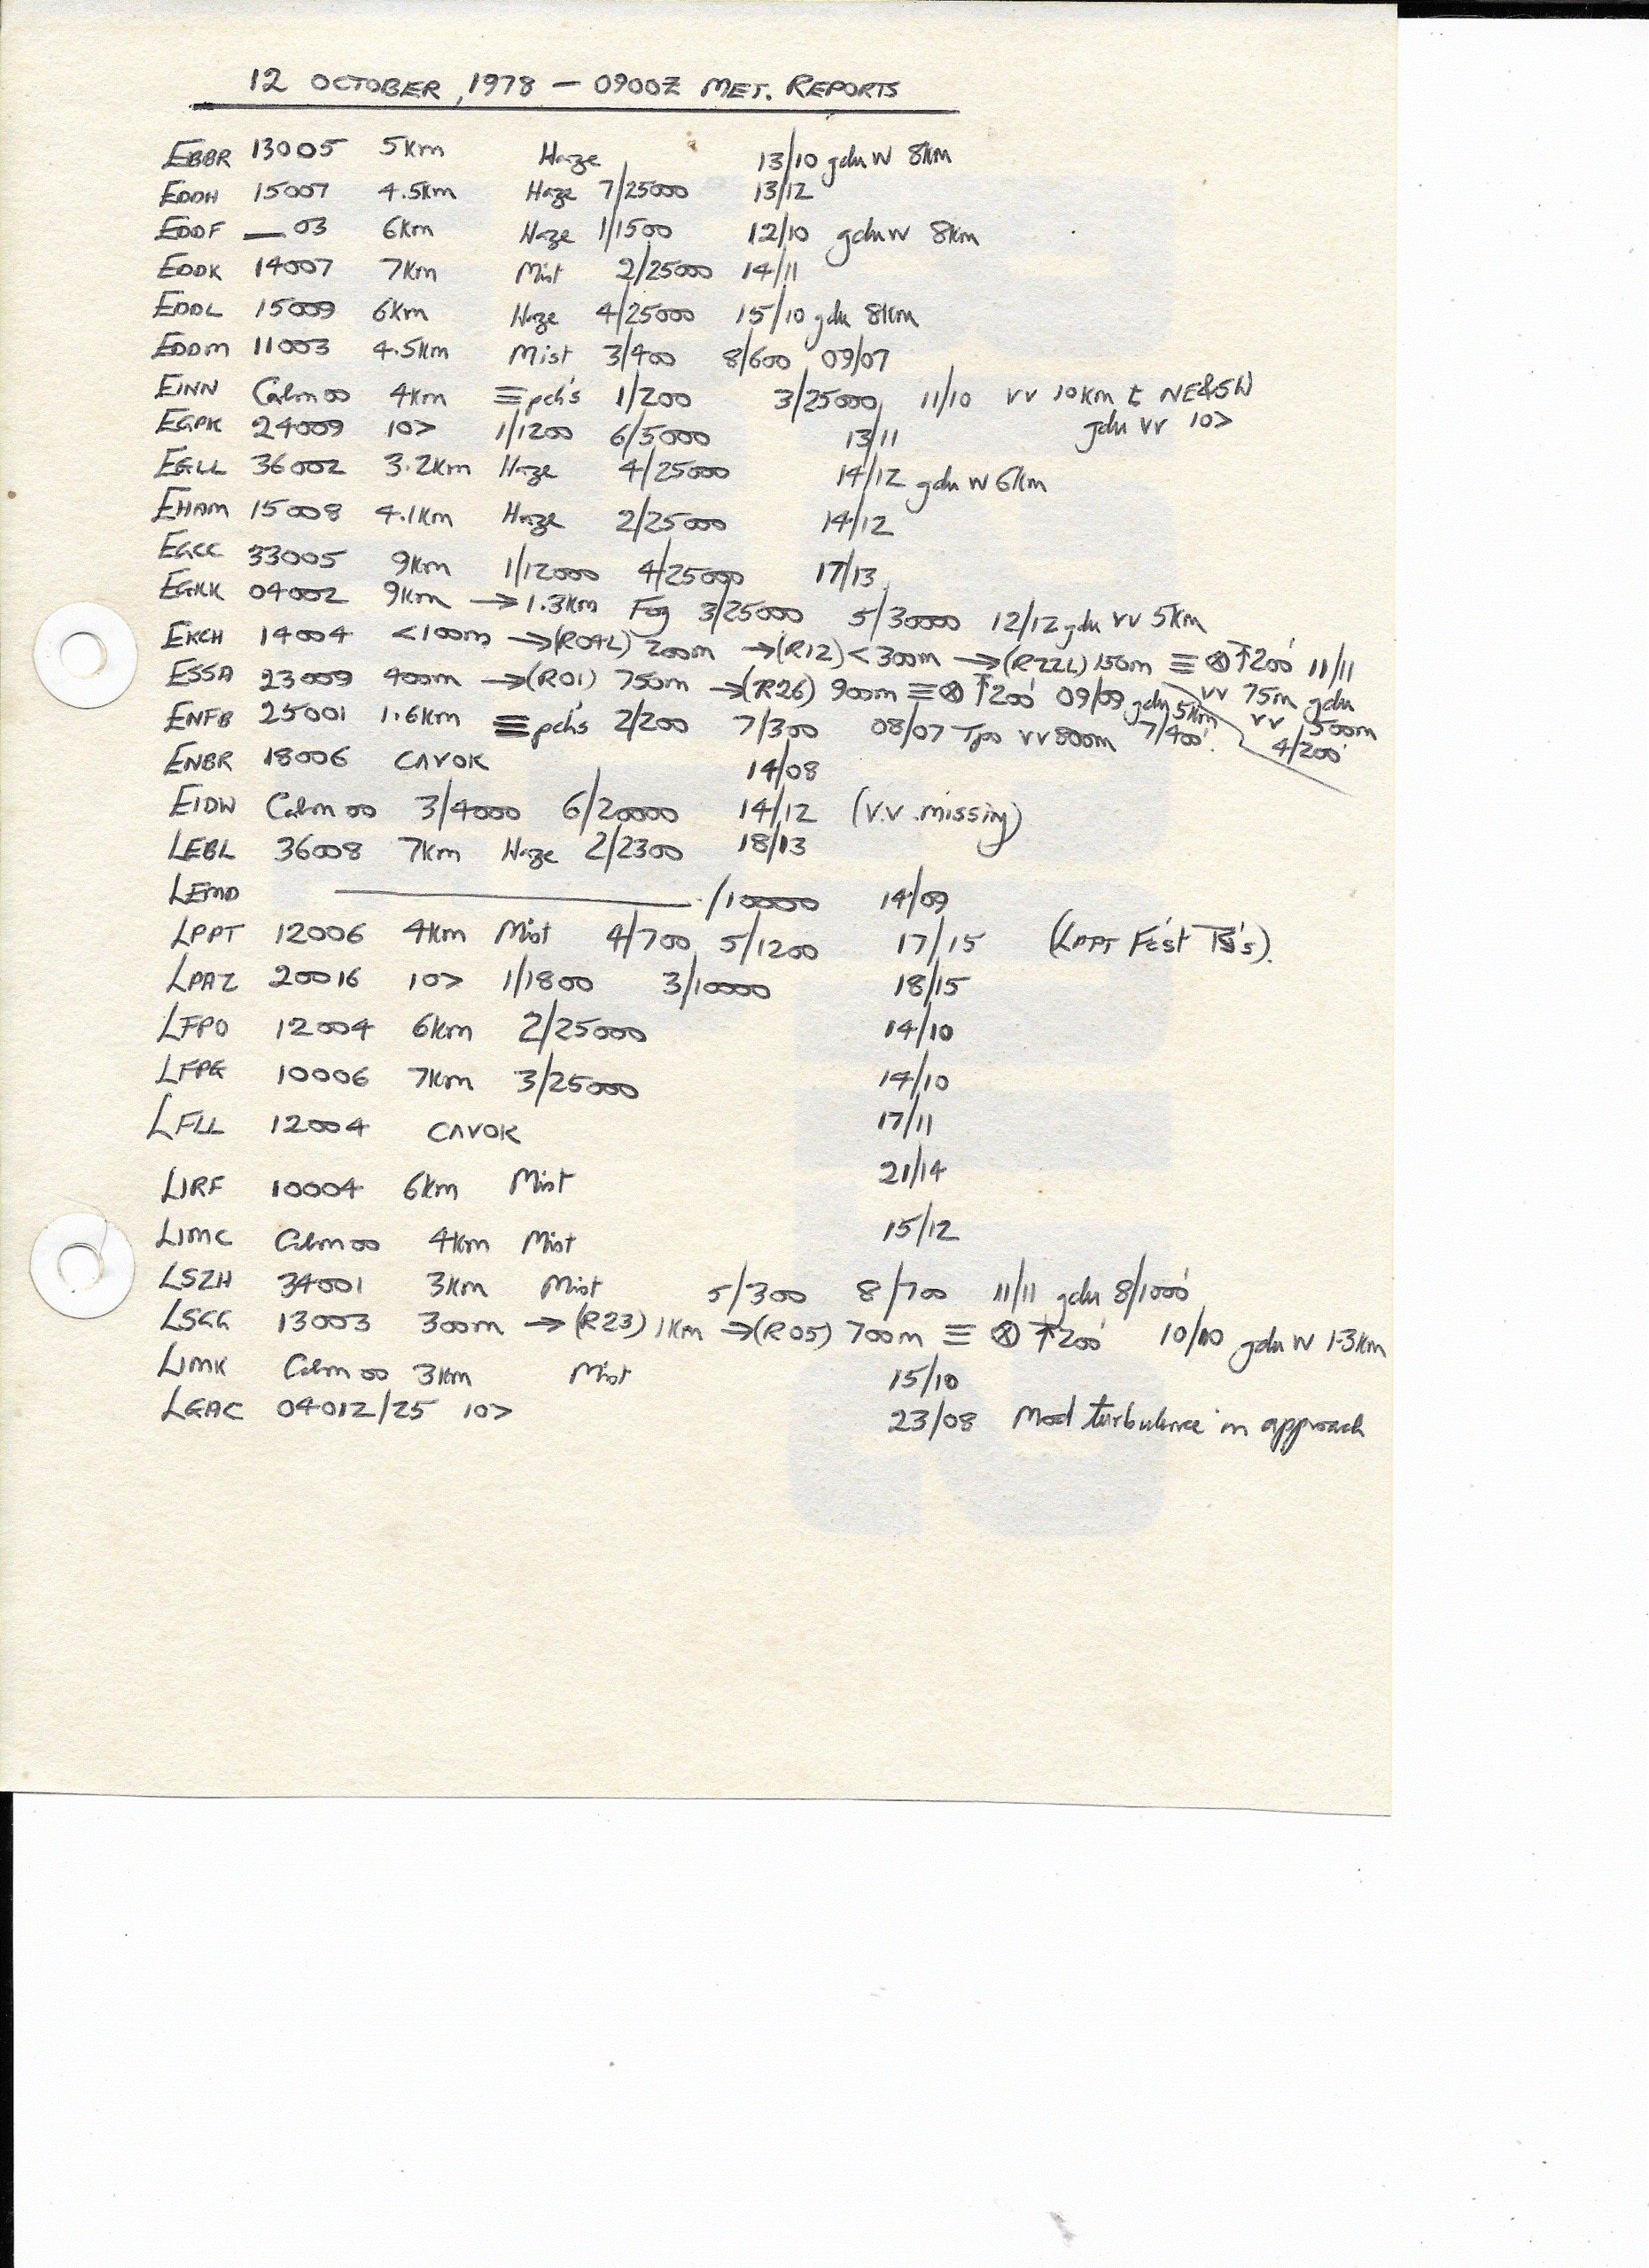 12 OCTOBER, 1978 — 0900Z MET. REPORTS
EBBR 13005 5km Haze 13/10 gdu W 8km
EDDH 15007 4.5km Haze 7/25000 13/12
EDDF — 03 6km Haze 1/1500 12/10 gdu W 8km
EDDK 14007 7km Mist 2/25000 14/11
EDDL 15009 6km Haze 4/25000 15/10 gdu 8km
EDDM 11003 4.5km Mist 3/400 8/600 09/07
EINN Calm 00 4km ≡ pch's 1/200 3/25000 11/10 VV 10km t NE&SW gdu VV 10>
EGPK 24009 10> 1/1200 6/5000 13/11
EGLL 36002 3.2km Haze 4/25000 14/12 gdu W 6km
EHAM 15008 4.1km Haze 2/25000 14/12
EGCC 33005 9km 1/12000 4/25000 17/13
EGKK 04002 9km → 1.3km Fog 3/25000 5/30000 12/12 gdu VV 5km
EKCH 14004 <100m → (R04L) 200m → (R12) <300m → (R22L) 150m ≡ ⊗ ↑200' 11/11 VV 75m gdu VV 500m 4/200'
ESSA 23009 400m → (R01) 750m → (R26) 900m ≡ ⊗ ↑200' 09/09 gdu 5km 7/400'
ENFB 25001 1.6km ≡ pch's 2/200 7/300 08/07 Tpo VV 800m
ENBR 18006 CAVOK 14/08
EIDW Calm 00 3/4000 6/20000 14/12 (V.V. missing)
LEBL 36008 7km Haze 2/2300 18/13
LEMD ——— /10000 14/09
LPPT 12006 4km Mist 4/700 5/1200 17/15 (LPPT Fc'st TS's).
LPAZ 20016 10> 1/1800 3/10000 18/15
LFPO 12004 6km 2/25000 14/10
LFPG 10006 7km 3/25000 14/10
LFLL 12004 CAVOK 17/11
LIRF 10004 6km Mist 21/14
LIMC Calm 00 4km Mist 15/12
LSZH 34001 3km Mist 5/300 8/700 11/11 gdu 8/1000'
LSGG 13003 300m → (R23) 1km → (R05) 700m ≡ ⊗ ↑200' 10/10 gdu W 1.3km
LIMK Calm 00 3km Mist 15/10
LGAC 04012/25 10> 23/08 Mod turbulence in approach